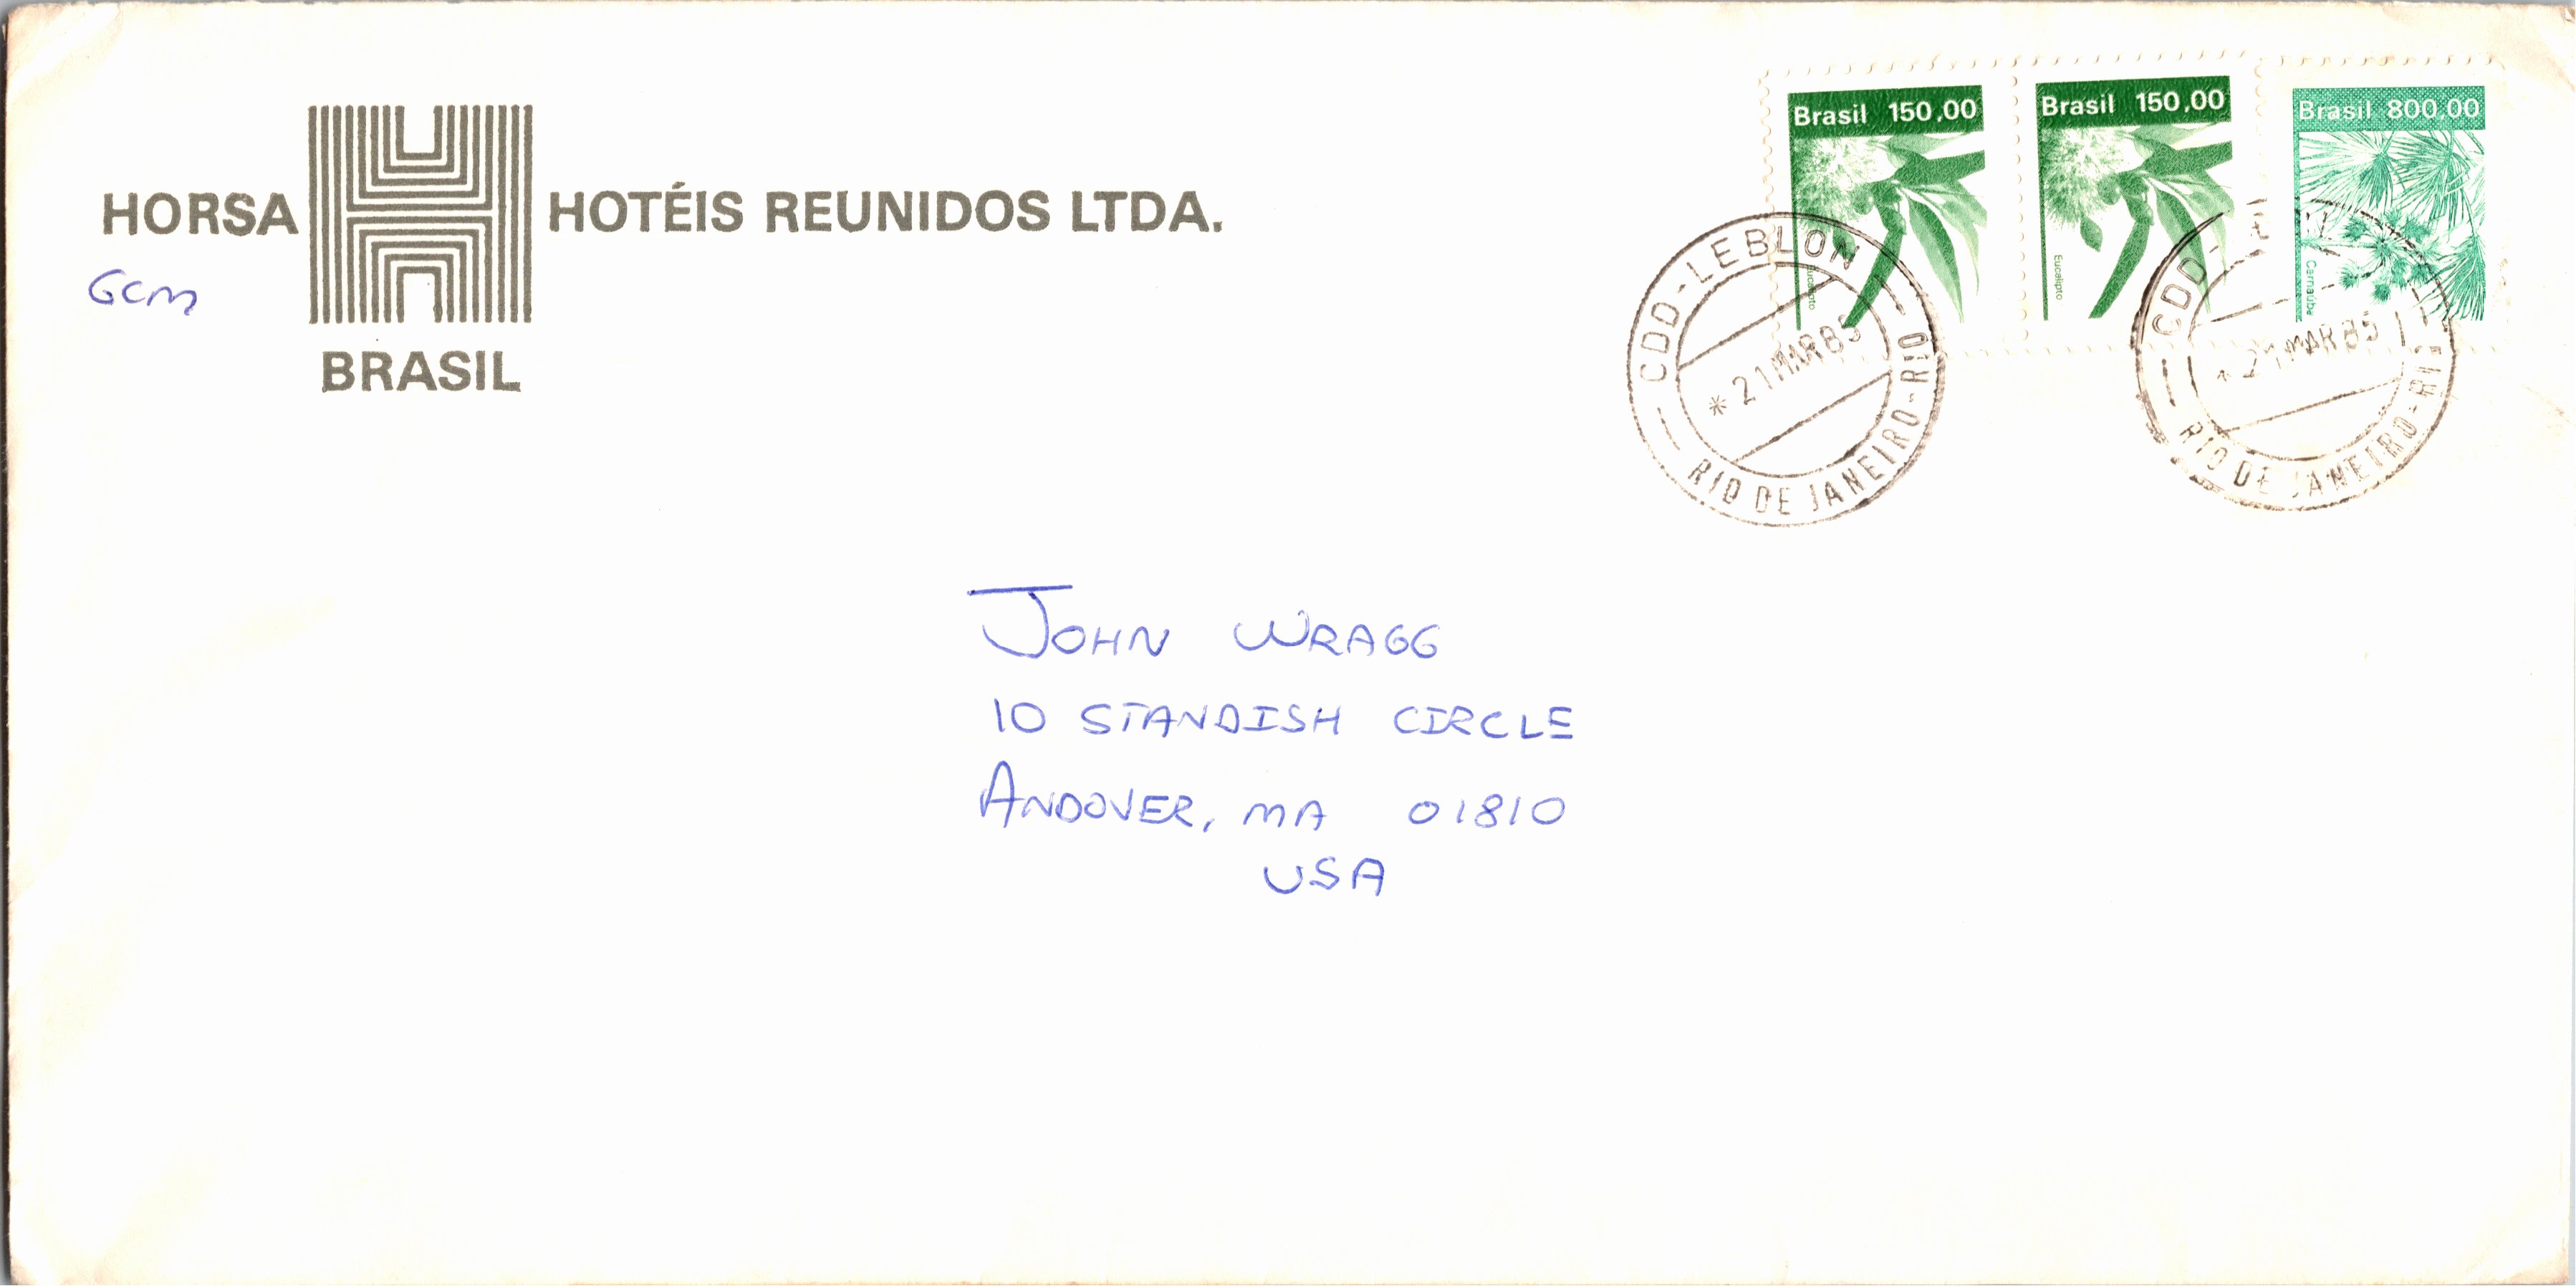 HORSA HOTÉIS REUNIDOS LTDA.
GCM
BRASIL
Brasil 150,00
Eucalipto
Brasil 150,00
Eucalipto
Brasil 800,00
Carnaúba
CDD-LEBLON
*21MAR85
RIO DE JANEIRO-RIO
CDD-
*21MAR85
RIO DE JANEIRO-
JOHN WRAGG
10 STANDISH CIRCLE
ANDOVER, MA 01810
USA